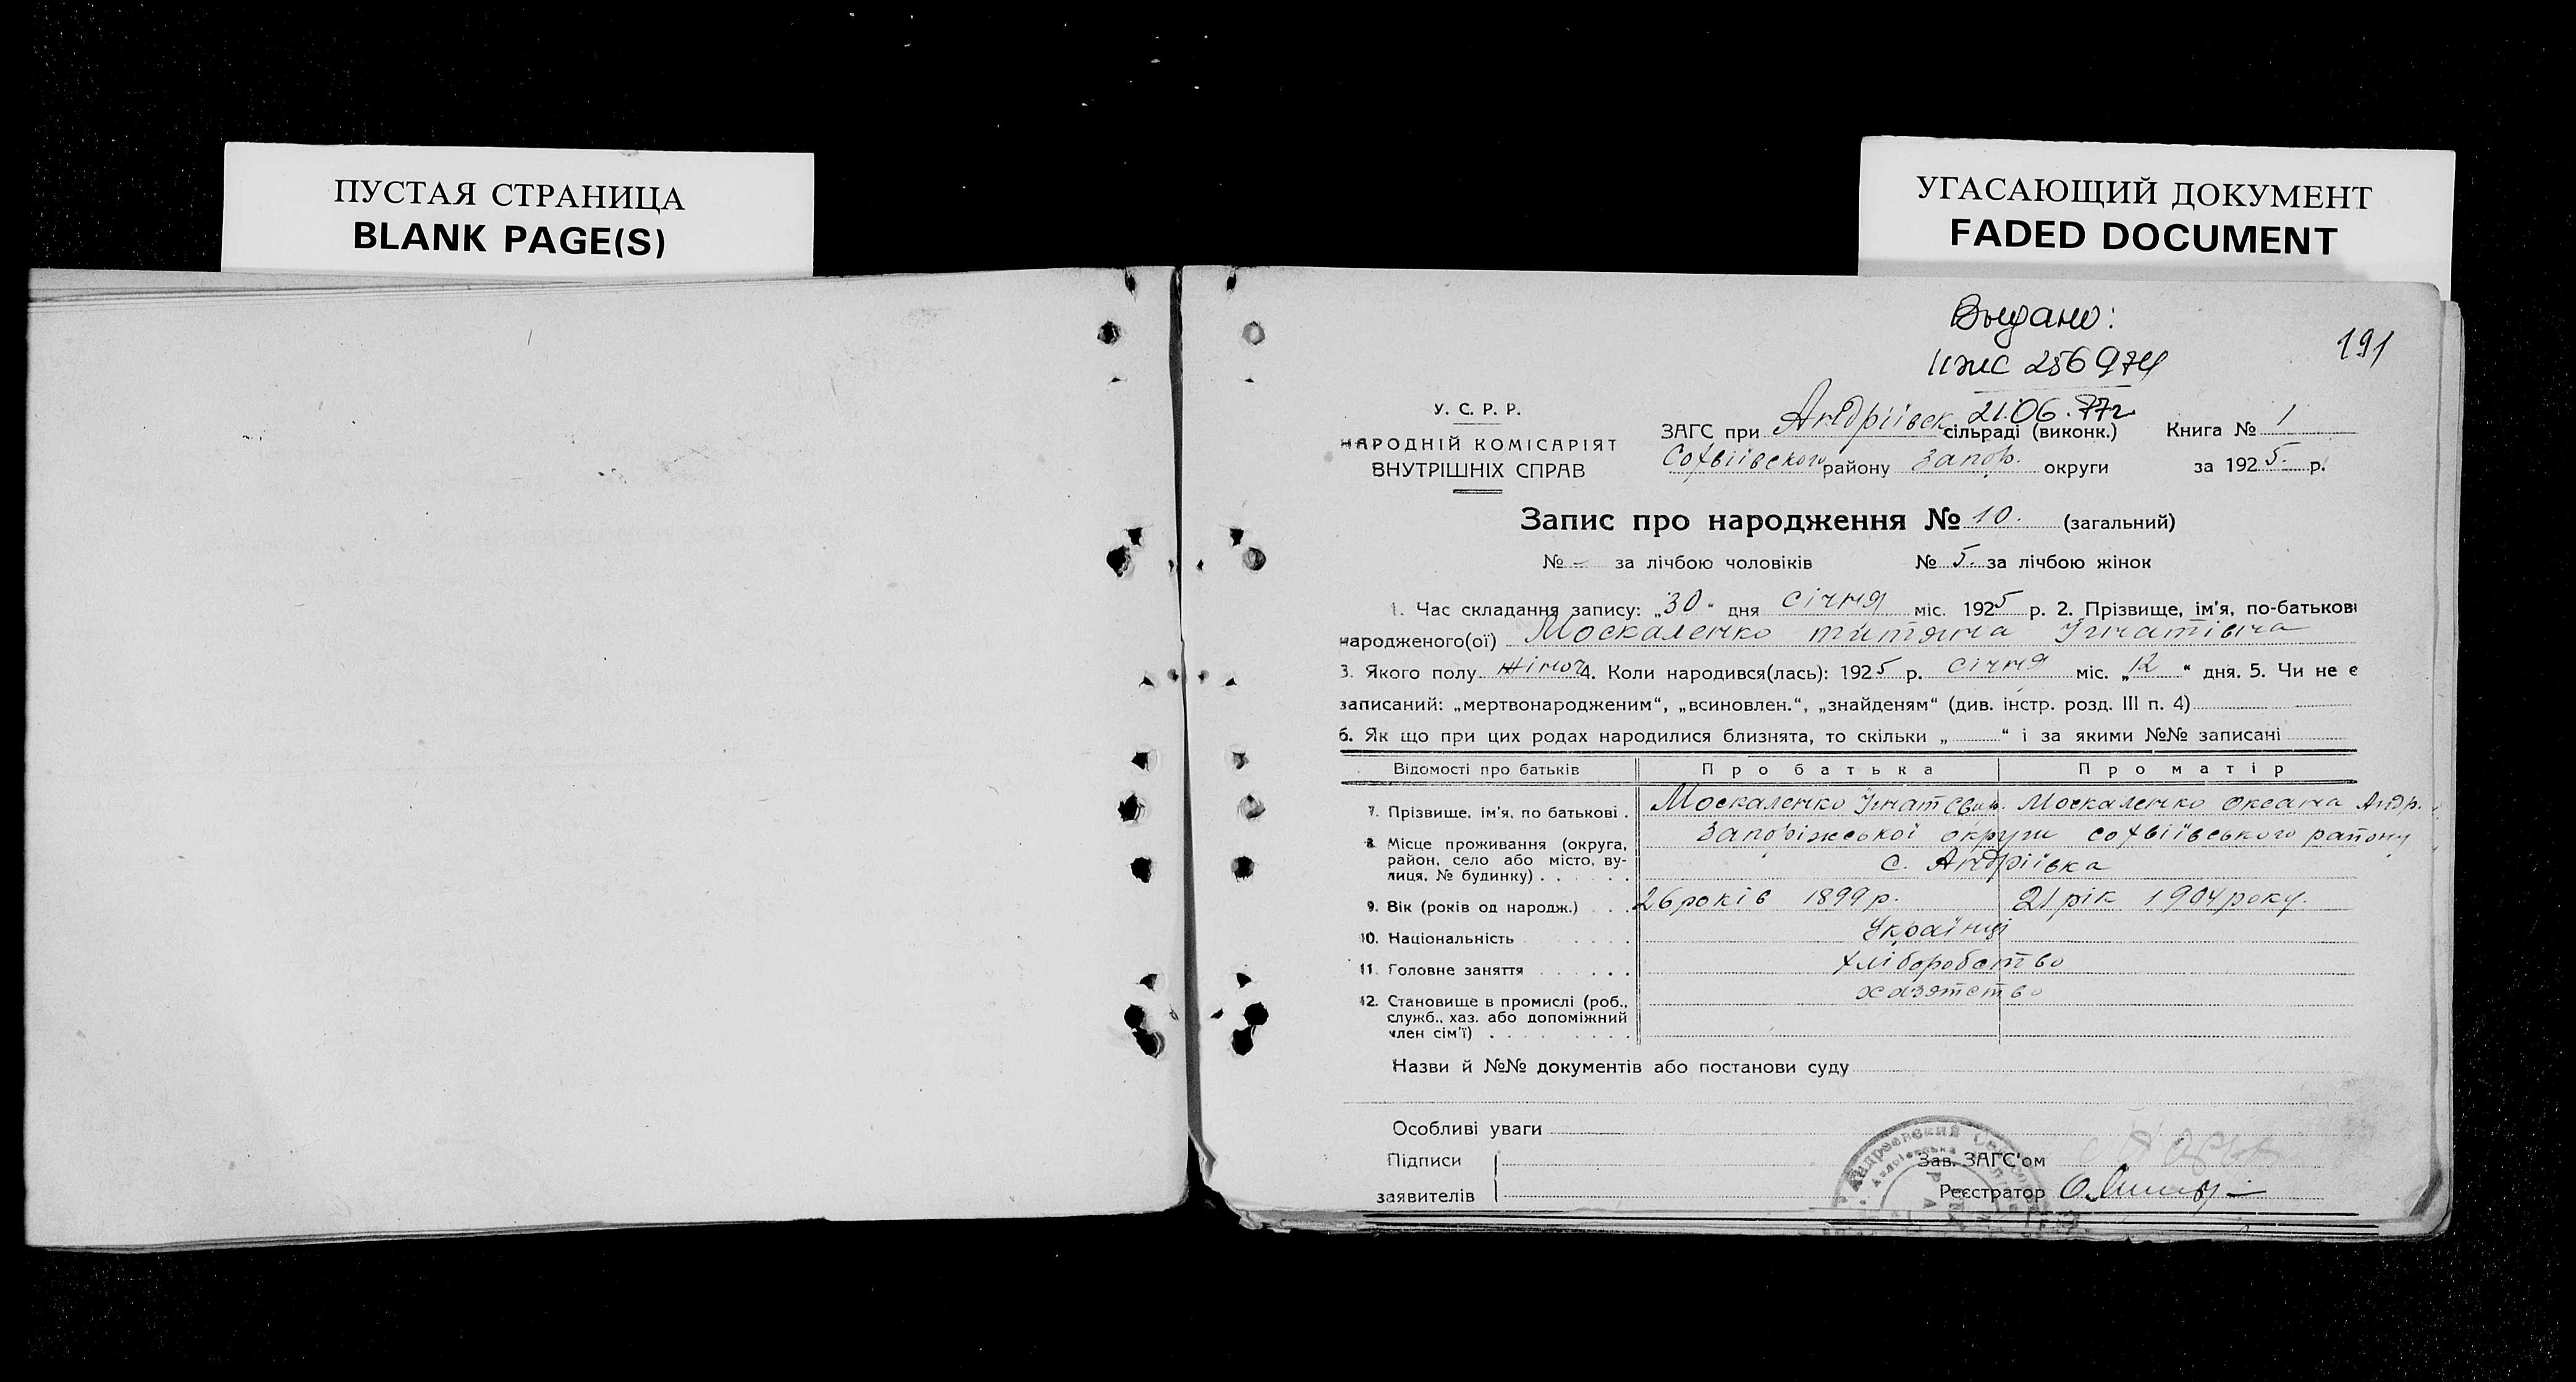 ПУСТАЯ СТРАНИЦА
BLANK PAGE(S)
УГАСАЮЩИЙ ДОКУМЕНТ
FADED DOCUMENT
Выдано:
II жс 256974
191
21.06.77г
У. С. Р. Р.
НАРОДНІЙ КОМІСАРІЯТ
ВНУТРІШНІХ СПРАВ
ЗАГС при Андріївск сільраді (виконк.) Книга № 1
Софіївского району Запор. округи за 1925 р.
Запис про народження № 10. (загальний)
№ - за лічбою чоловіків № 5. за лічбою жінок
1. Час складання запису: „30“ дня січня міс. 1925 р. 2. Прізвище, ім'я, по-батькові
народженого(ої) Москаленко титяна Ігнатівна
3. Якого полу жіноч 4. Коли народився(лась): 1925 р. січня міс. „12“ дня. 5. Чи не є
записаний: „мертвонародженим“, „всиновлен.“, „знайденям“ (див. інстр. розд. III п. 4)
6. Як що при цих родах народилися близнята, то скільки „ “ і за якими №№ записані
Відомості про батьків Про батька Про матір
7. Прізвище, ім'я, по батькові . Москаленко Ігнат Москаленко оксана Андр.
8. Місце проживання (округа, Запоріжської округи софіївського району
район, село або місто, ву- с. Андріївка
лиця, № будинку) . . . . . .
9. Вік (років од народж.) . . 26 років 1899 р. 21 рік 1904 року.
10. Національність . . . . Українці
11. Головне заняття . . . . . . хліборобство
12. Становище в промислі (роб.,
служб., хаз. або допоміжний
член сім'ї) . . . . . . . .
Назви й №№ документів або постанови суду
Особливі уваги
Підписи Зав. ЗАГС'ом
заявителів Реєстратор